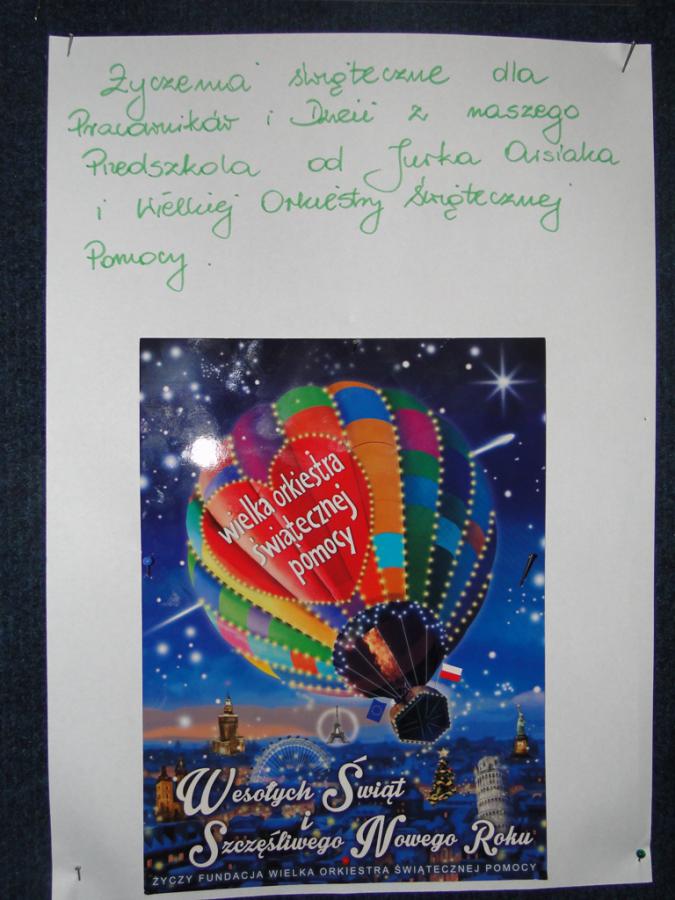 Życzenia świąteczne dla
Pracowników i Dzieci z naszego
Przedszkola od Jurka Owsiaka
i Wielkiej Orkiestry Świątecznej
Pomocy.
wielka orkiestra
świątecznej
pomocy
Wesołych Świąt
i
Szczęśliwego Nowego Roku
ŻYCZY FUNDACJA WIELKA ORKIESTRA ŚWIĄTECZNEJ POMOCY